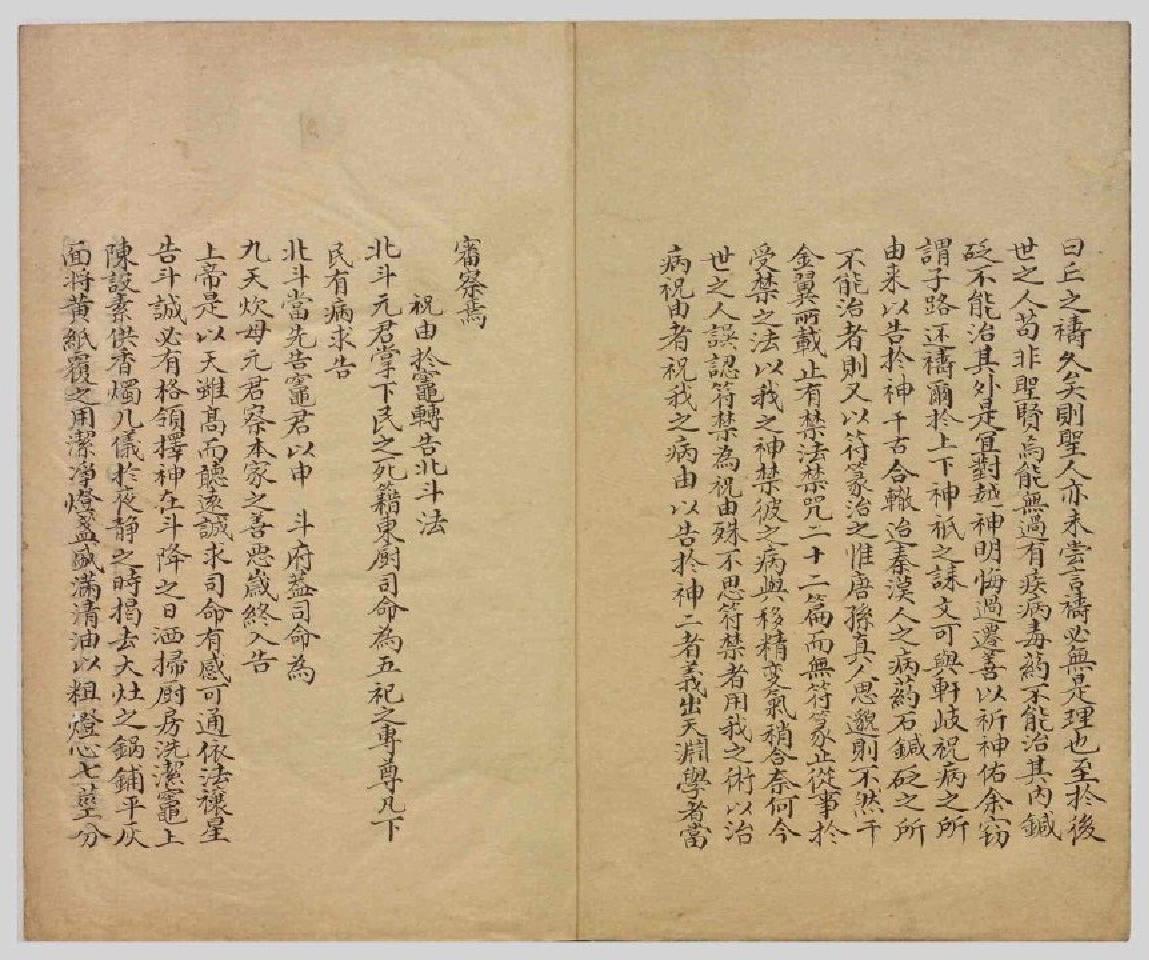 曰丘之禱久矣則聖人亦未嘗言禱必無是理也至於後
世之人苟非聖賢焉能無過有疾病毒药不能治其內鍼
砭不能治其外是宜對越神明悔過遷善以祈神佑余窃
謂子路迋禱爾於上下神祇之誄文可與軒岐祝病之所
由来以告於神千古合轍迨秦漢人之病药石鍼砭之所
不能治者則又以符篆治之惟唐孫真人思邈則不然千
金翼所載止有禁法禁咒二十二篇而無符篆止從事於
受禁之法以我之神禁彼之病與移精变氣稍合奈何今
世之人誤認符禁為祝由殊不思符禁者用我之術以治
病祝由者祝我之病由以告於神二者義出天淵學者當
審察焉
祝由於竈轉告北斗法
北斗元君掌下民之死籍東厨司命為五祀之專尊凡下
民有病求告
北斗當先告竈君以申 斗府葢司命為
九天炊母元君察本家之善惡歲終入告
上帝是以天雖高而聽遠誠求司命有感可通依法禳星
告斗誠必有格領擇神在斗降之日洒掃厨房洗潔竈上
陳設素供香燭几儀於夜靜之時揭去大灶之鍋鋪平灰
面将黄紙覆之用潔凈燈盞盛滿清油以粗燈心七莖分